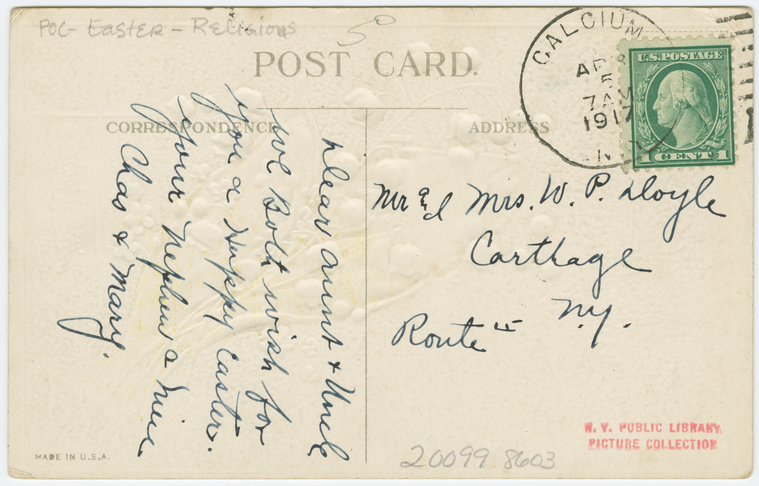 POC- Easter - Religious
POST CARD.
CORRESPONDENCE
ADDRESS
CALCIUM
APR
5
7 AM
1917
N.Y.
U.S. POSTAGE
1 CENT 1
Dear Aunt & Uncle
We Both wish for
you a Happy Easter.
your Nephew & Niece
Chas & Mary.
Mr and Mrs. W. P. Doyle
Carthage
N.Y.
Route
MADE IN U.S.A.
N. Y. PUBLIC LIBRARY
PICTURE COLLECTION
20099 8603